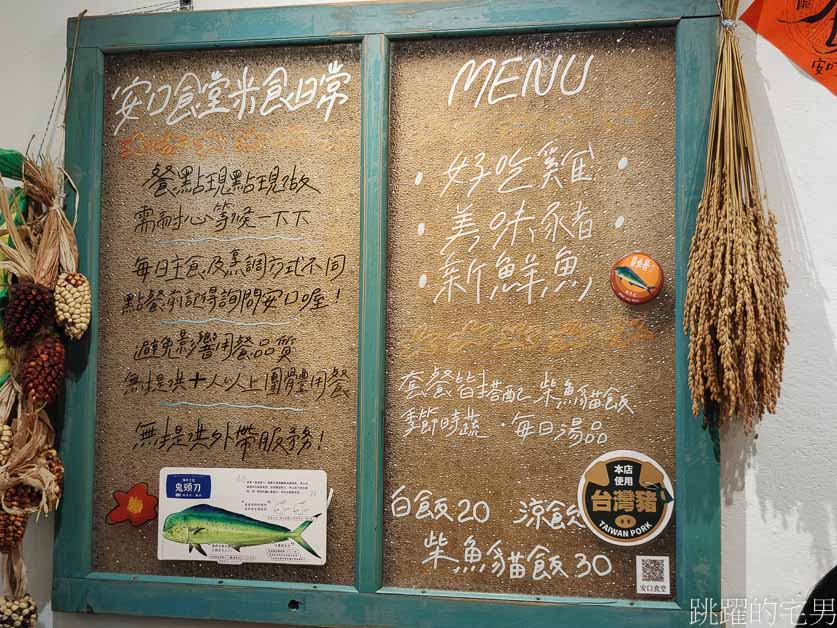 安口食堂米食日常
餐點現點現做
需耐心等候一下下
每日主食及烹調方式不同
點餐前記得詢問安口喔！
避免影響用餐品質
無提供十人以上團體用餐
無提供外帶服務！
鬼頭刀
MENU
・好吃雞・
・美味豬・
・新鮮魚
套餐皆搭配 柴魚貓飯
季節時蔬・每日湯品
本店
使用
台灣豬
TAIWAN PORK
白飯20 涼飲
柴魚貓飯30
安口食堂
跳躍的宅男